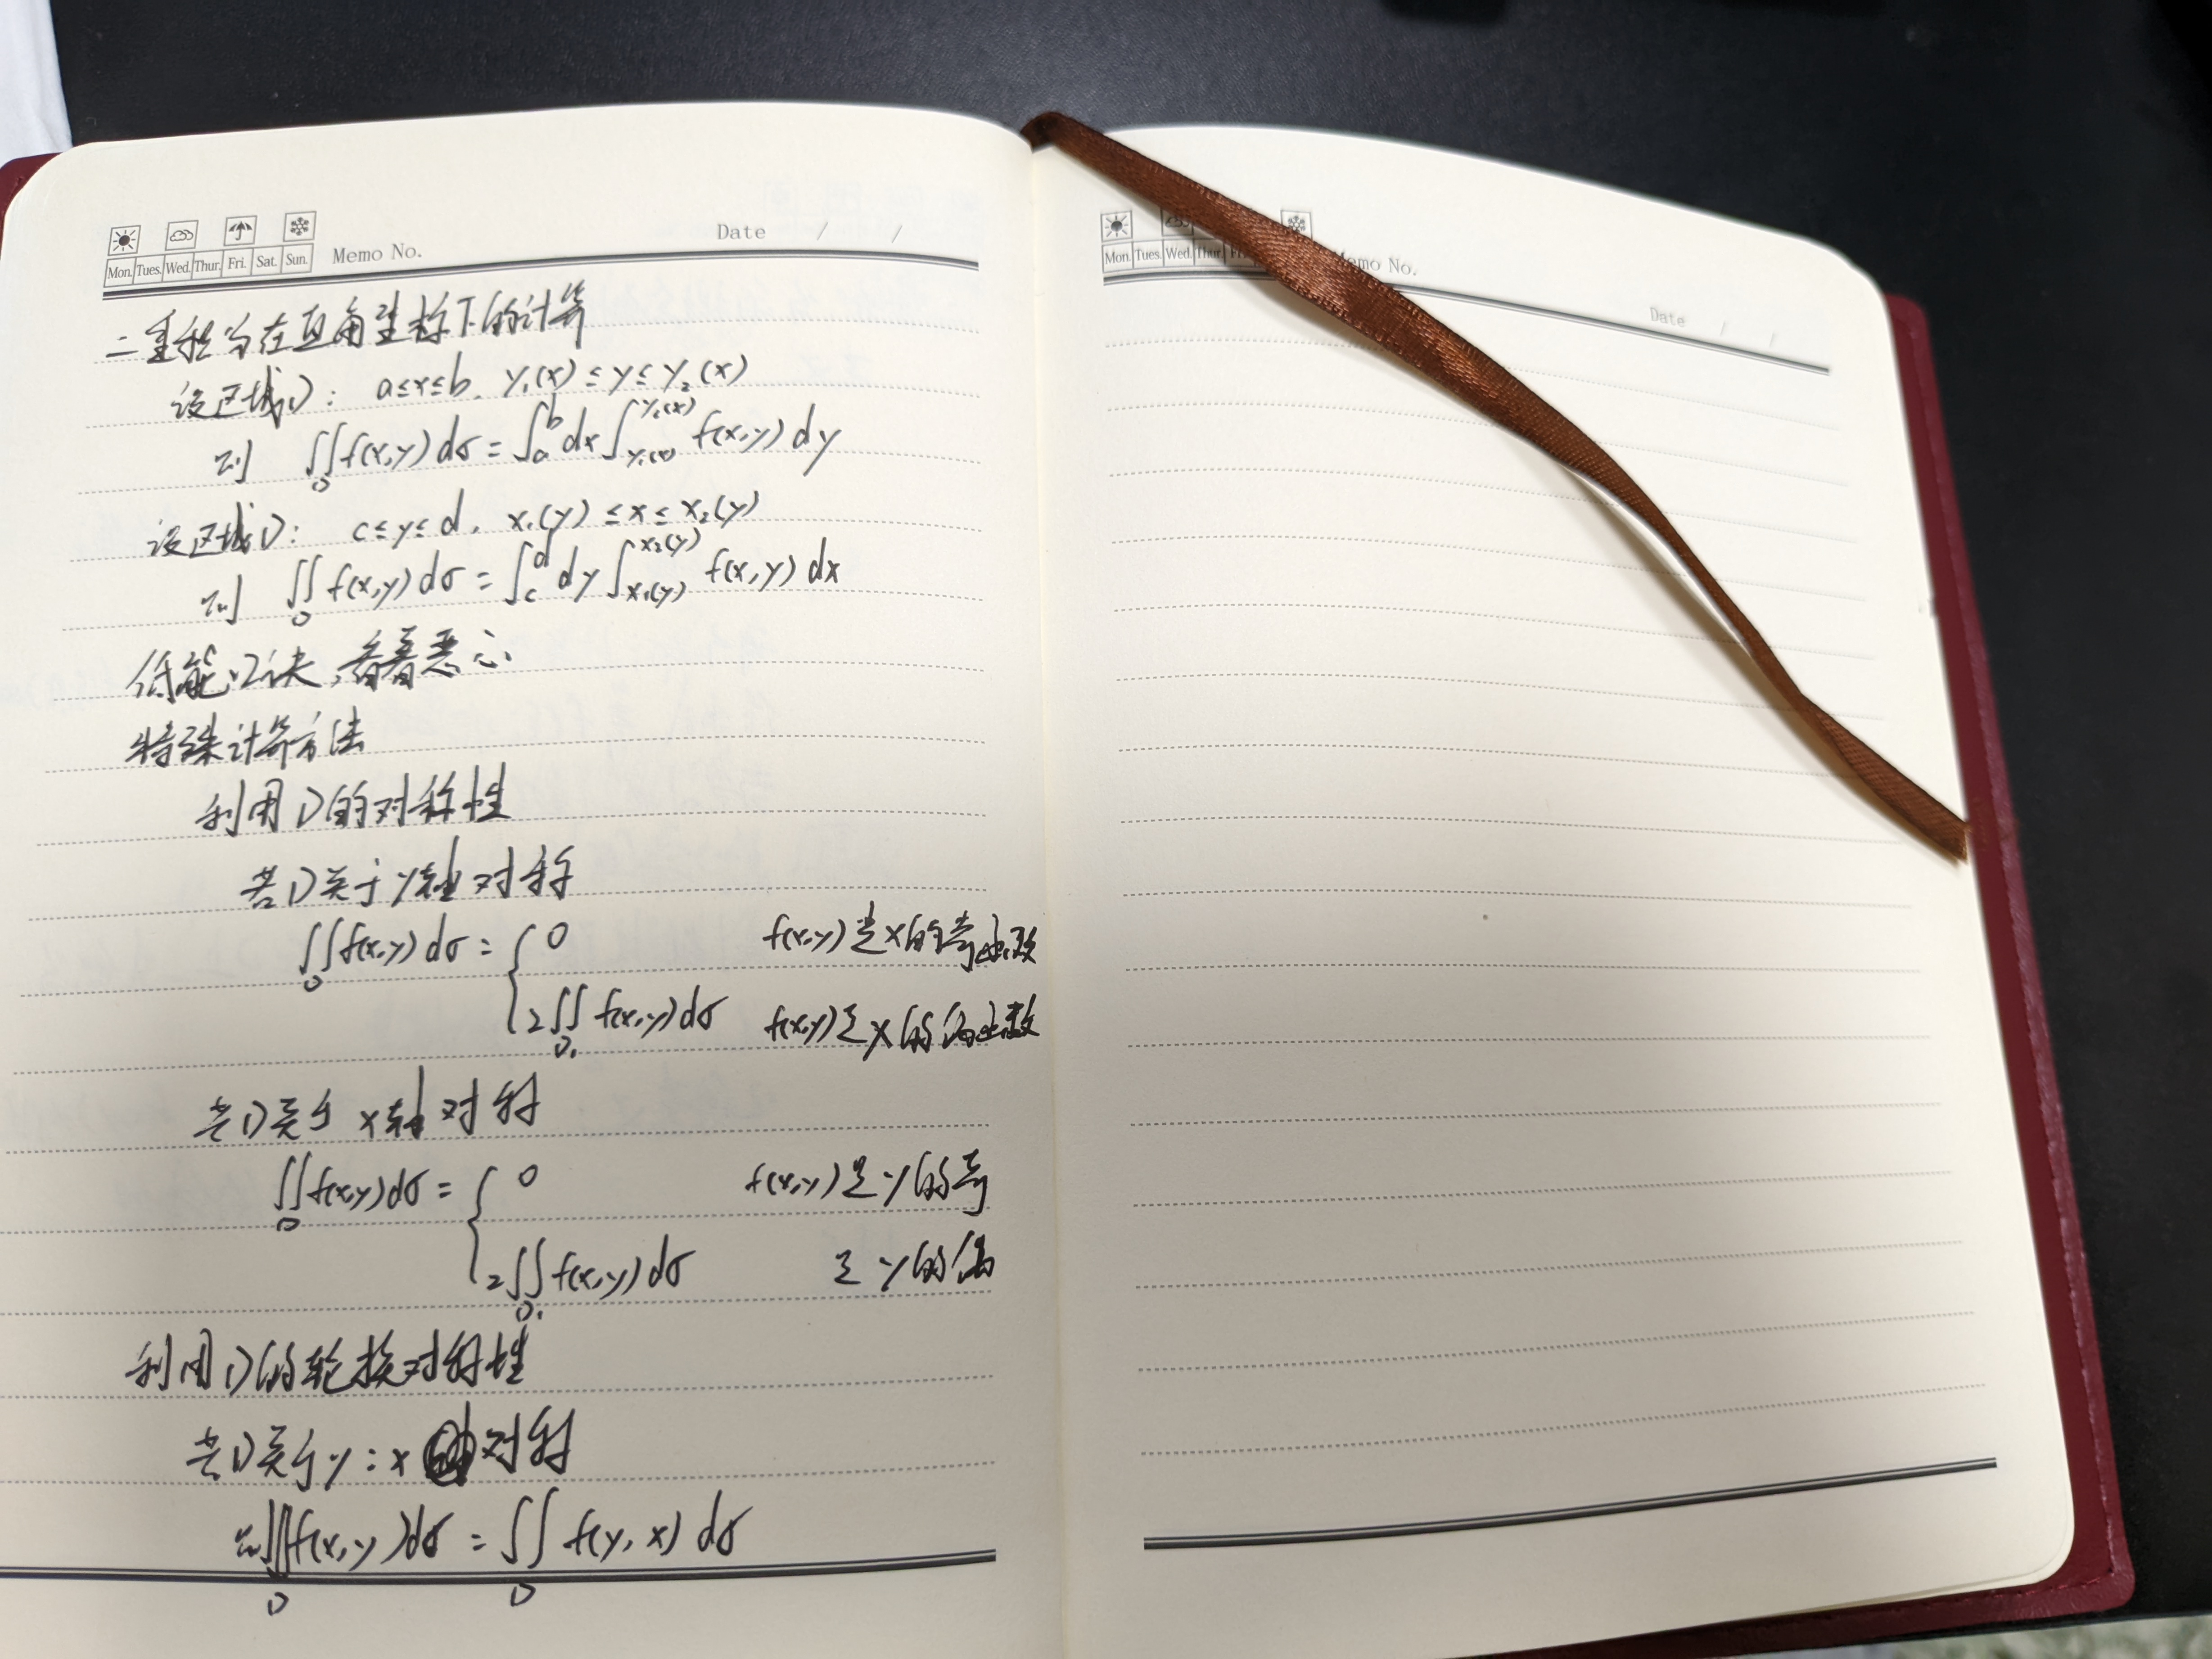 Mon. Tues. Wed. Thur. Fri. Sat. Sun. Memo No. Date / /
二重积分在直角坐标下的计算
设区域D: a≤x≤b, y₁(x)≤y≤y₂(x)
则 ∬_D f(x,y)dσ = ∫_a^b dx ∫_{y₁(x)}^{y₂(x)} f(x,y)dy
设区域D: c≤y≤d, x₁(y)≤x≤x₂(y)
则 ∬_D f(x,y)dσ = ∫_c^d dy ∫_{x₁(y)}^{x₂(y)} f(x,y)dx
低能口诀,看着恶心
特殊计算方法
利用D的对称性
若D关于y轴对称
∬_D f(x,y)dσ = { 0 f(x,y)是x的奇函数
2∬_{D₁} f(x,y)dσ f(x,y)是x的偶函数
若D关于x轴对称
∬_D f(x,y)dσ = { 0 f(x,y)是y的奇
2∬_{D₁} f(x,y)dσ 是y的偶
利用D的轮换对称性
若D关于y=x对称
则∬_D f(x,y)dσ = ∬_D f(y,x)dσ
Mon. Tues. Wed. Thur. Memo No.
Date / /